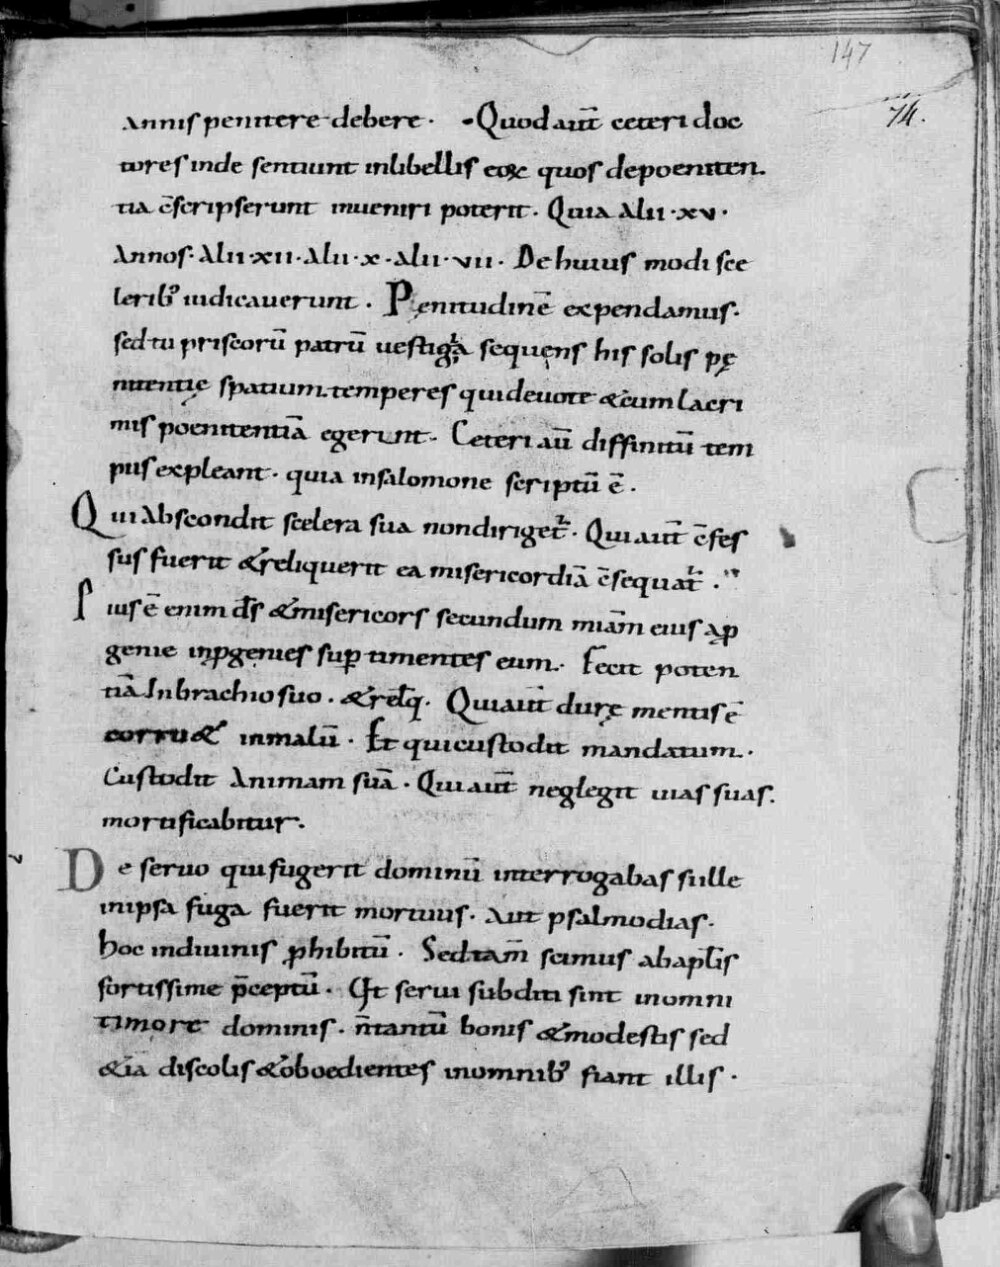 147
74.
Annis penitere debere. Quod aut̄ ceteri doc
tores inde sentiunt in libellis eoꝝ quos de poeniten
tia c̄scripserunt inueniri poterit. Quia Alii·xv·
Annos· Alii·xii·Alii·x·Alii·vii· De huius modi sce
lerib; iudicauerunt. Pęnitudinē expendamus.
sed tu priscorū patrū uestigia sequens his solis pę
nitentię spatium temperes qui deuote & cum lacri
mis poenitentiā egerunt. Ceteri aū diffinitū tem
pus expleant. quia in salomone scriptū ē.
Qui Abscondit scelera sua non diriget᷑. Qui aut̄ c̄fes
sus fuerit & reliquerit ea misericordiā c̄sequat᷑.
Pius ē enim d̄s & misericors secundum miām eius a ꝓ
genie in ꝓgenies suꝑ timentes eum. Fecit poten
tiā In brachio suo. & relq̄. Qui aut̄ durę mentis ē
corru& in malū. Et qui custodit mandatum.
Custodit Animam suā. Qui aut̄ neglegit uias suas.
mortificabitur.
De seruo qui fugerit dominū interrogabas si ille
in ipsa fuga fuerit mortuus. Aut psalmodias.
hoc in diuinis ꝓhibitū. Sed tam̄ scimus ab aplīs
fortissime p̄ceptū. Ut serui subditi sint in omni
timore dominis. n̄ tantū bonis & modestis sed
& iā discolis & oboedientes in omnib; fiant illis.